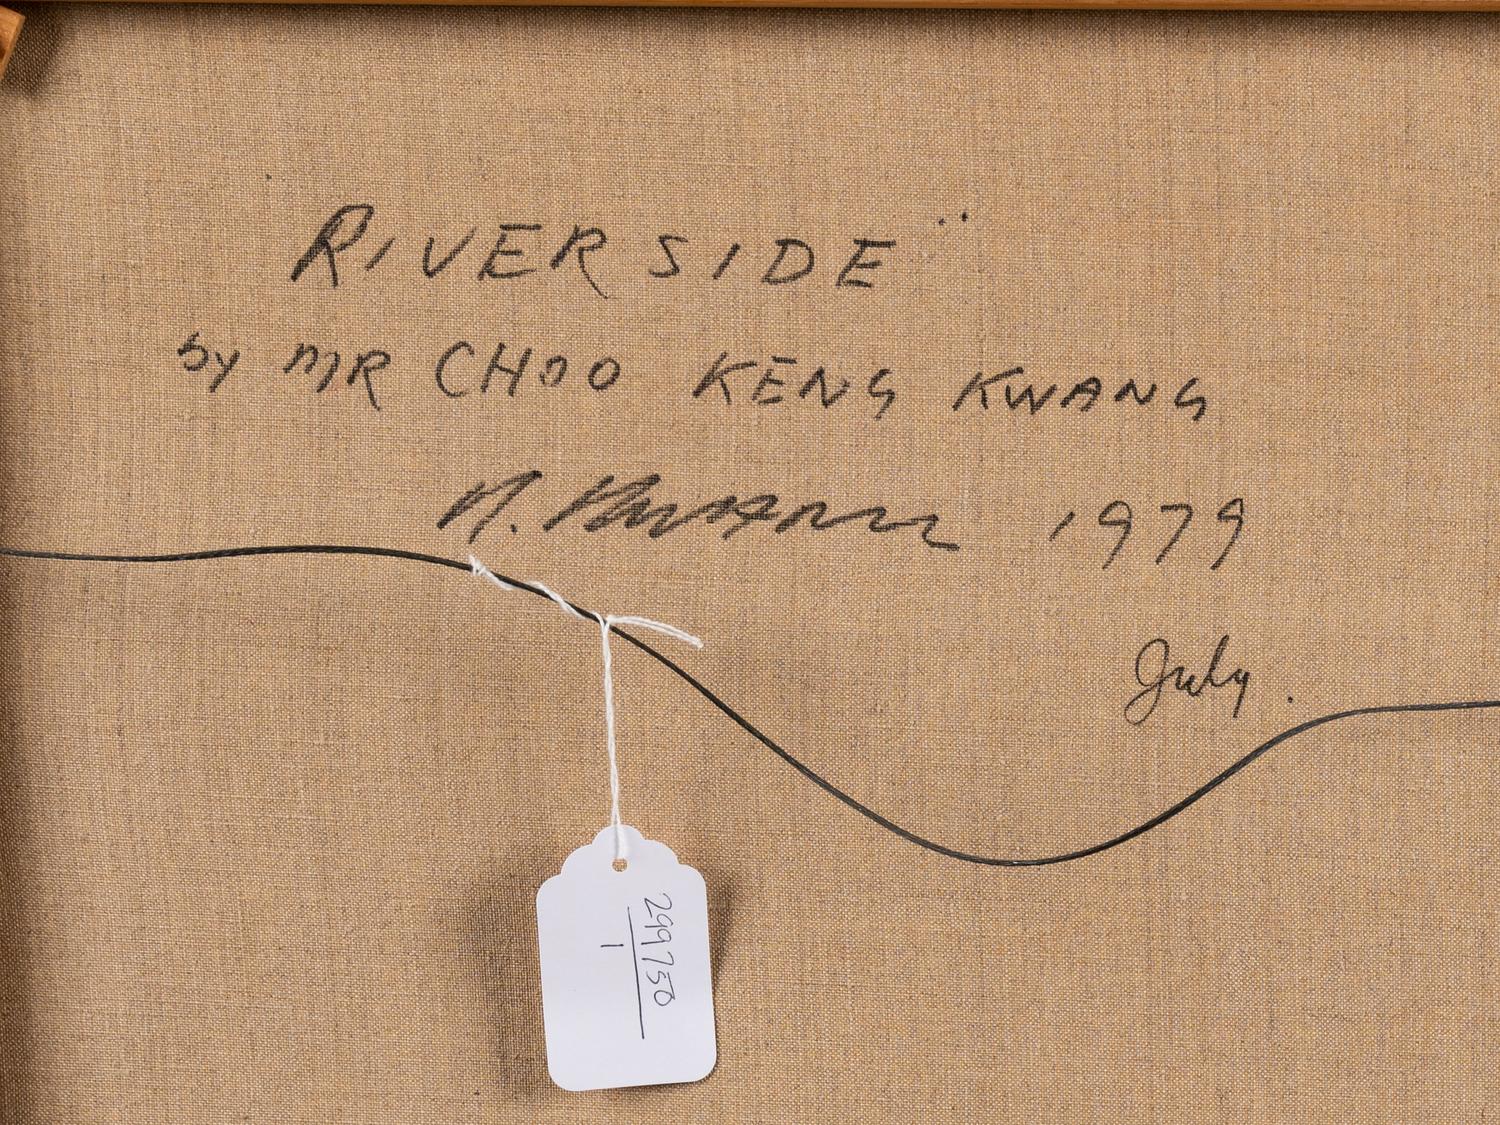 RIVERSIDE"
by MR CHOO KENG KWANG
1979
July.
299750
1